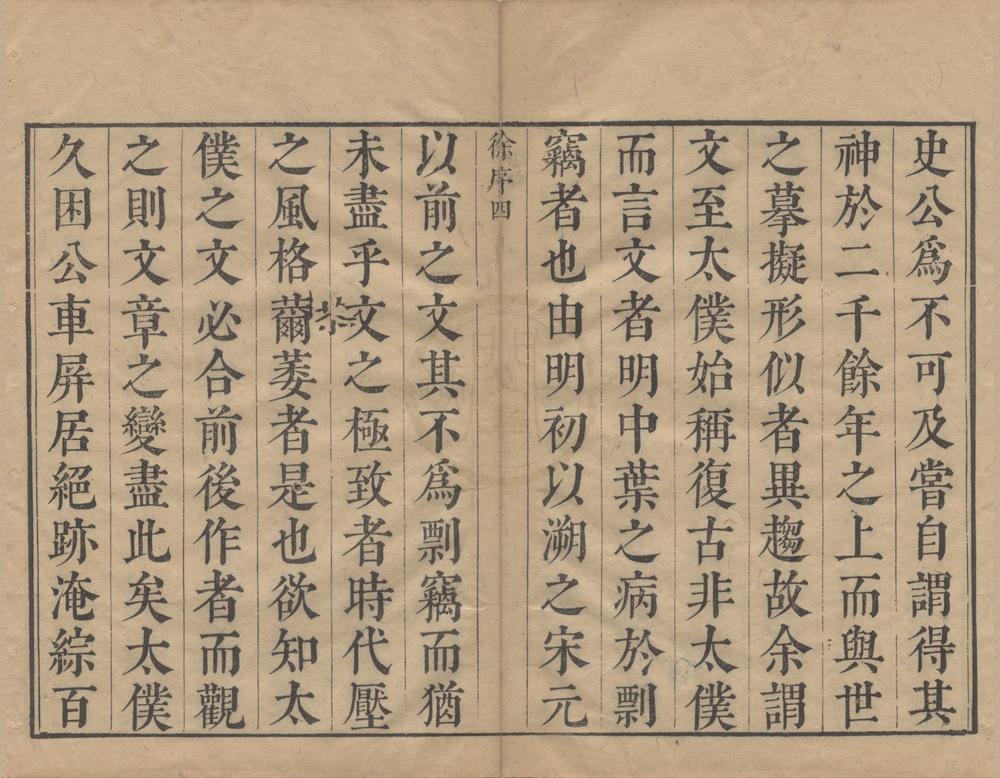 史公爲不可及嘗自謂得其
神於二千餘年之上而與世
之摹擬形似者異趨故余謂
文至太僕始稱復古非太僕
而言文者明中葉之病於剽
竊者也由明初以溯之宋元
徐序四
以前之文其不爲剽竊而猶
未盡乎文之極致者時代壓
之風格薾萎者是也欲知太
僕之文必合前後作者而觀
之則文章之變盡此矣太僕
久困公車屏居絕跡淹綜百